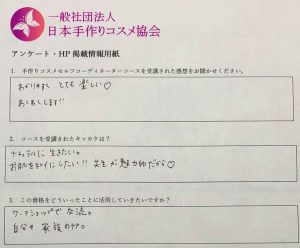 一般社団法人
日本手作りコスメ協会
アンケート・HP 掲載情報用紙
1. 手作りコスメセルフコーディネーターコースを受講された感想をお聞かせください。
わかりやすく とても 楽しい♡
2. コースを受講されたキッカケは？
ナチュラルに 生きたい。
お肌をキレイにしたい!! 先生が 魅力的だから♡
3. この資格をどういったことに活用していきたいですか？
ワークショップで 交流。
自分や 家族のケア。